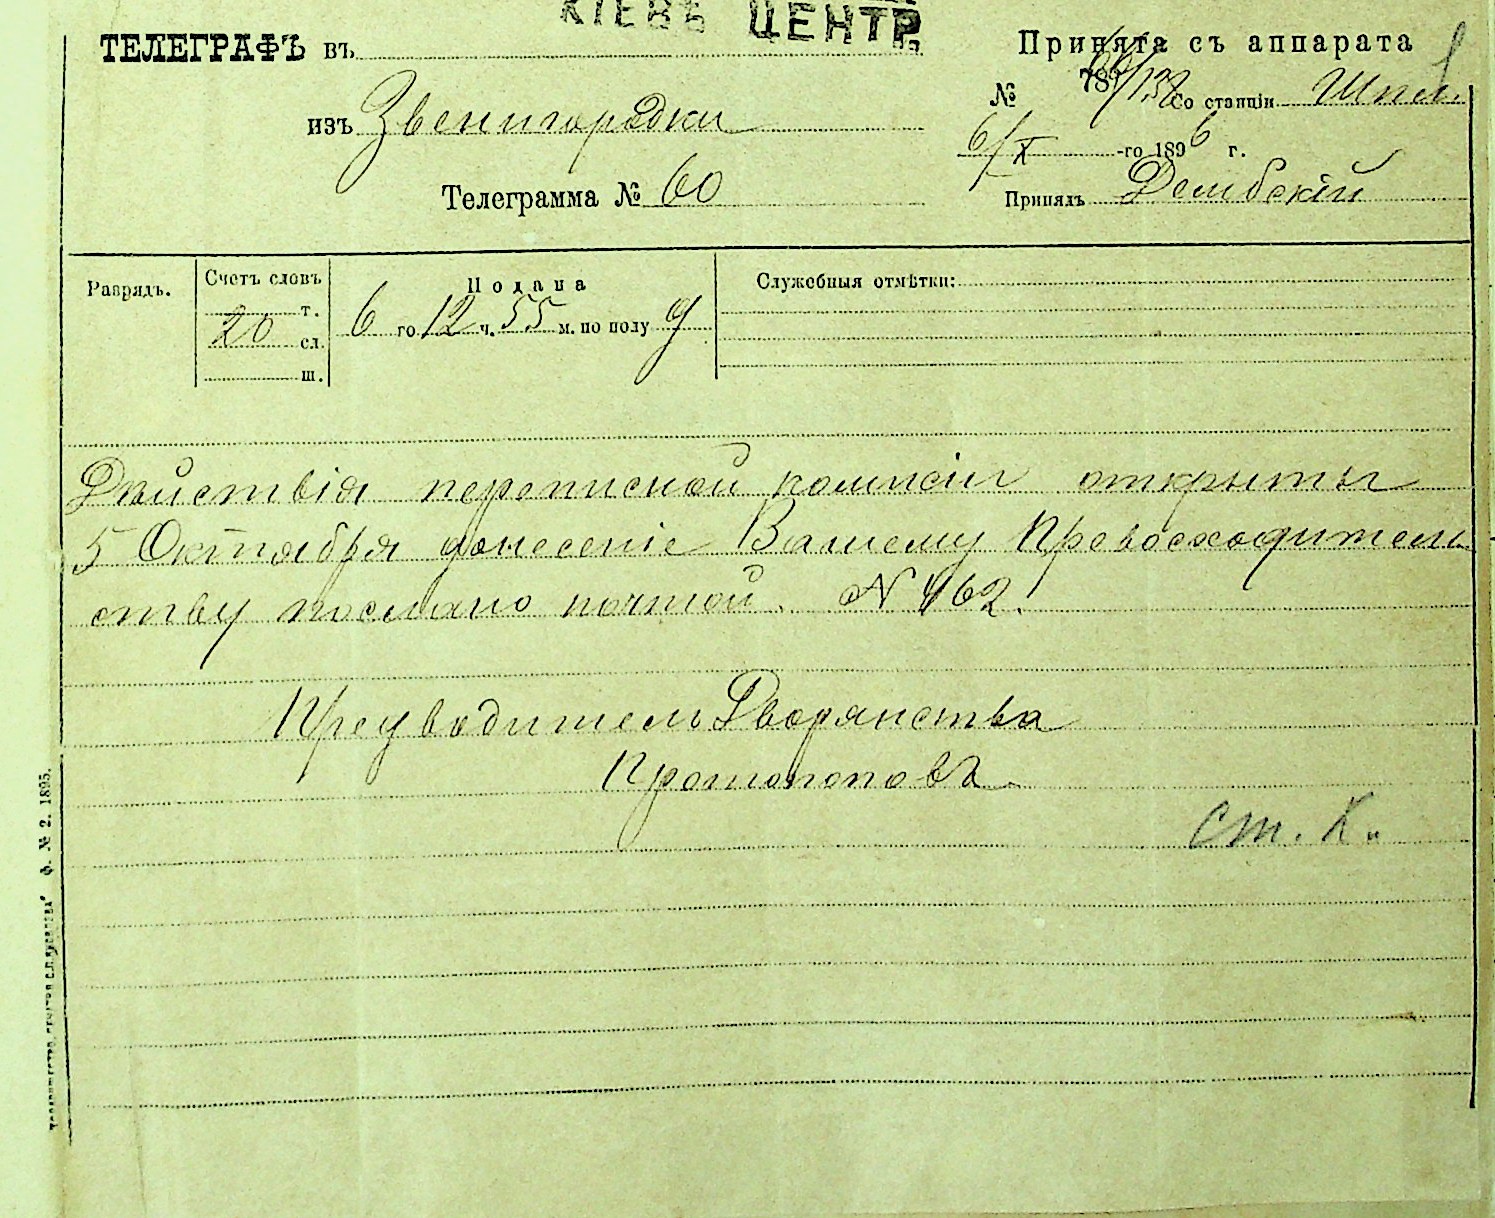 КІЕВЪ ЦЕНТР.
ТЕЛЕГРАФЪ въ
Принята съ аппарата
№ со станціи Шпол.
изъ Звенигородки
6/X -го 1896 г.
Телеграмма № 60
Принялъ Дембскій
Разрядъ.
Счетъ словъ
т.
20 сл.
ш.
Подана
6 го 12 ч. 55 м. по полу д
Служебныя отмѣтки:
Дѣйствія переписной комисіи открыты
5 Октября донесеніе Вашему Превосходитель
ству послано почтой. № 462.
Предводитель Дворянства
Протопоповъ
ст. К.
ф. № 2. 1895.